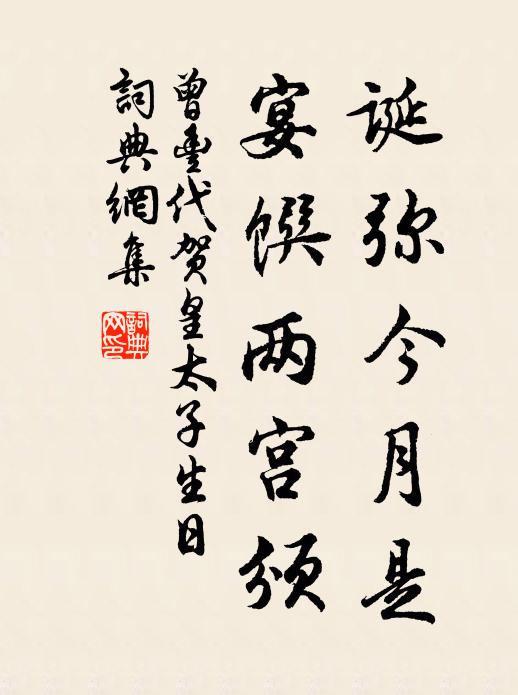 诞弥今月是
宴馔两宫颁
曾丰代贺皇太子生日
詞典網集
詞典网印